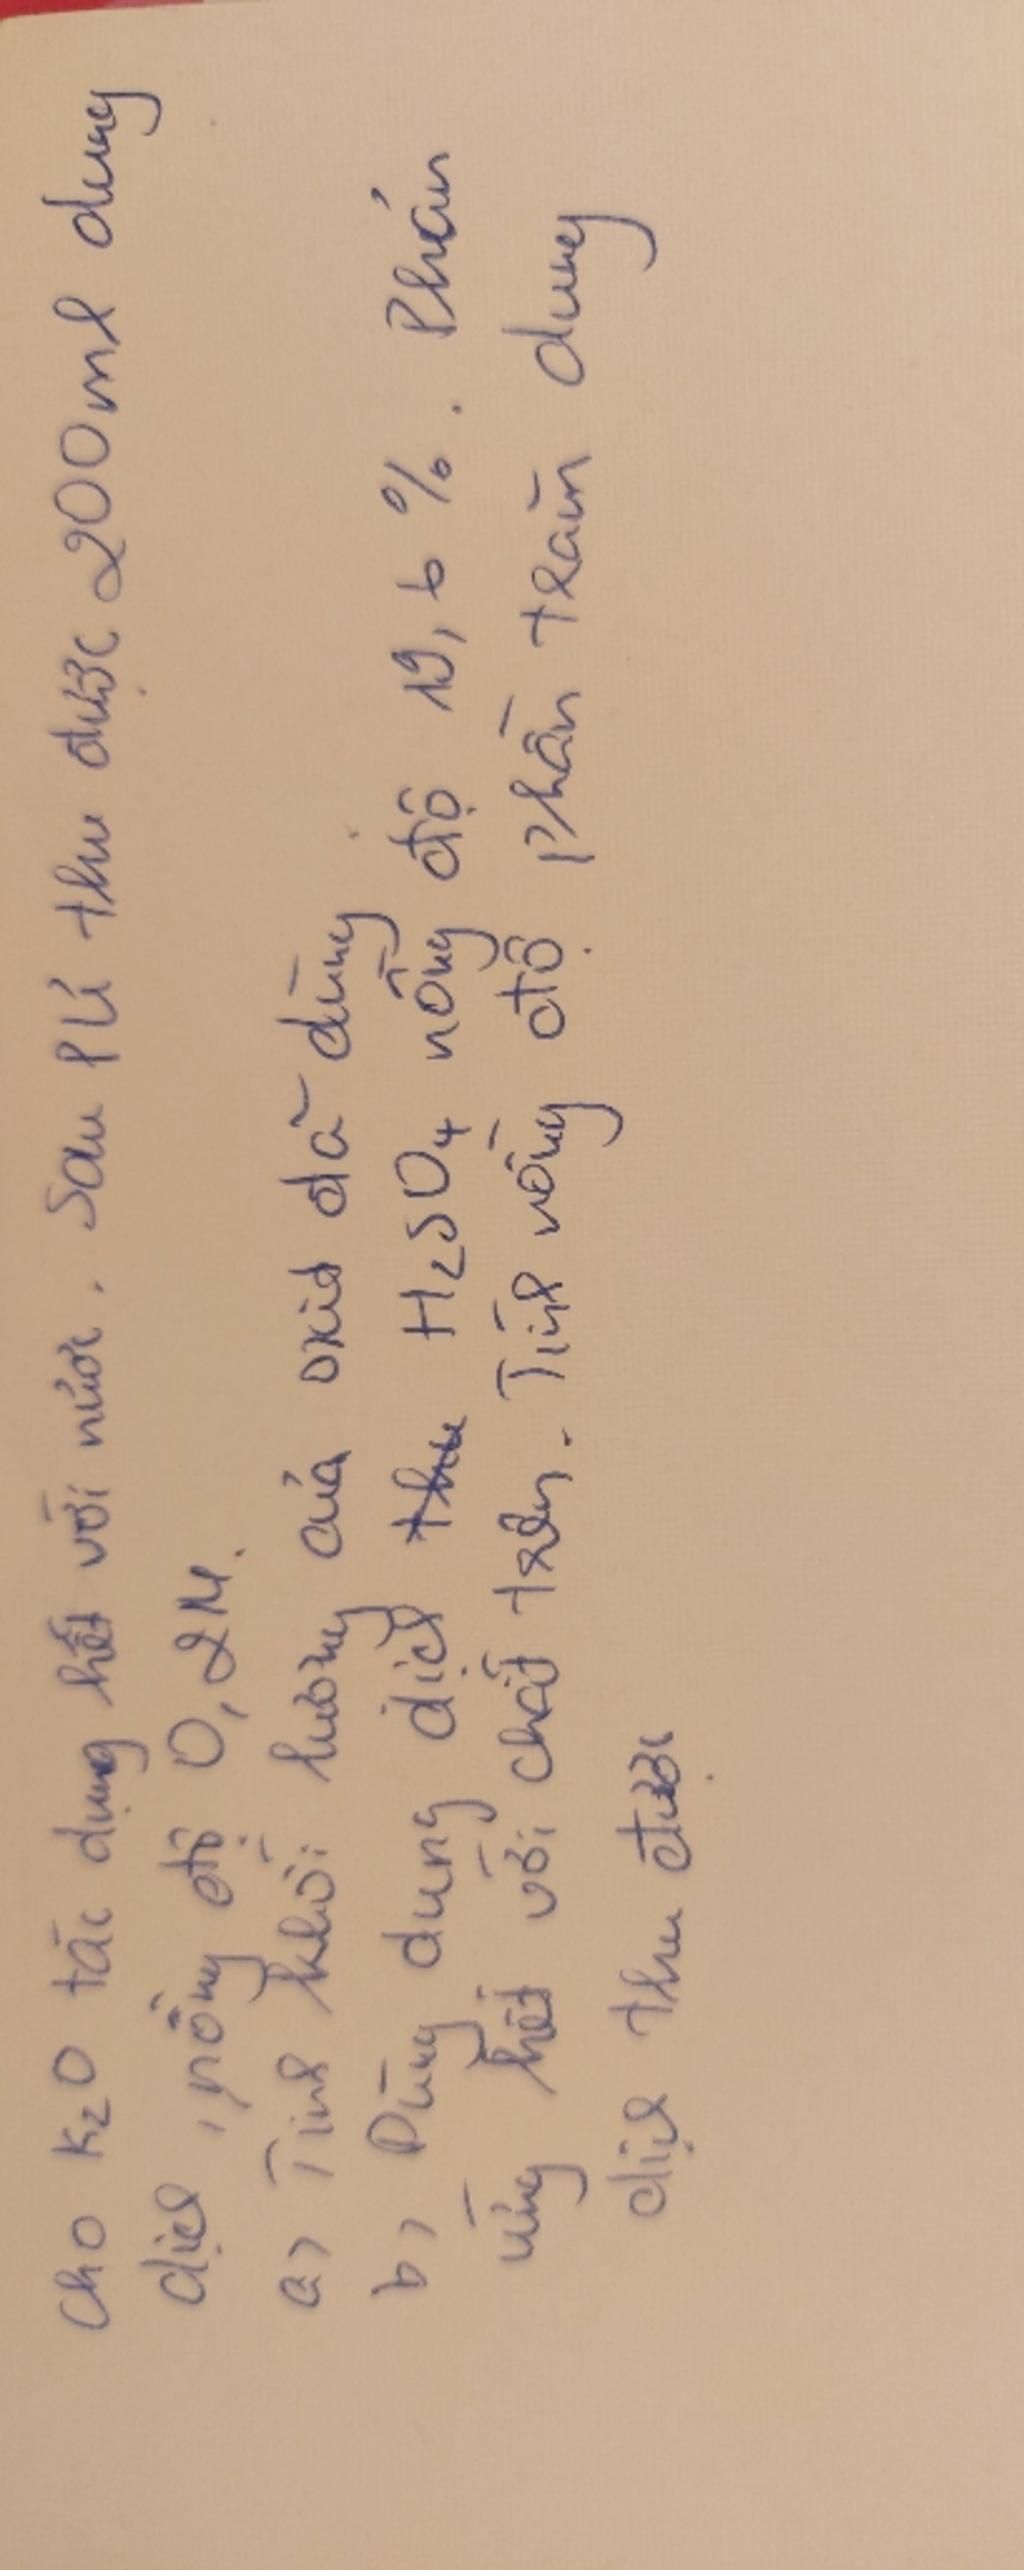 Cho K₂O tác dụng hết với nước. Sau PƯ thu được 200ml dung
dịch, nồng độ 0,2M.
a, Tính khối lượng của oxit đã dùng
b, Dùng dung dịch thu H₂SO₄ nồng độ 19,6%. Phản
ứng hết với chất trên. Tính nồng độ phần trăm dung
dịch thu được